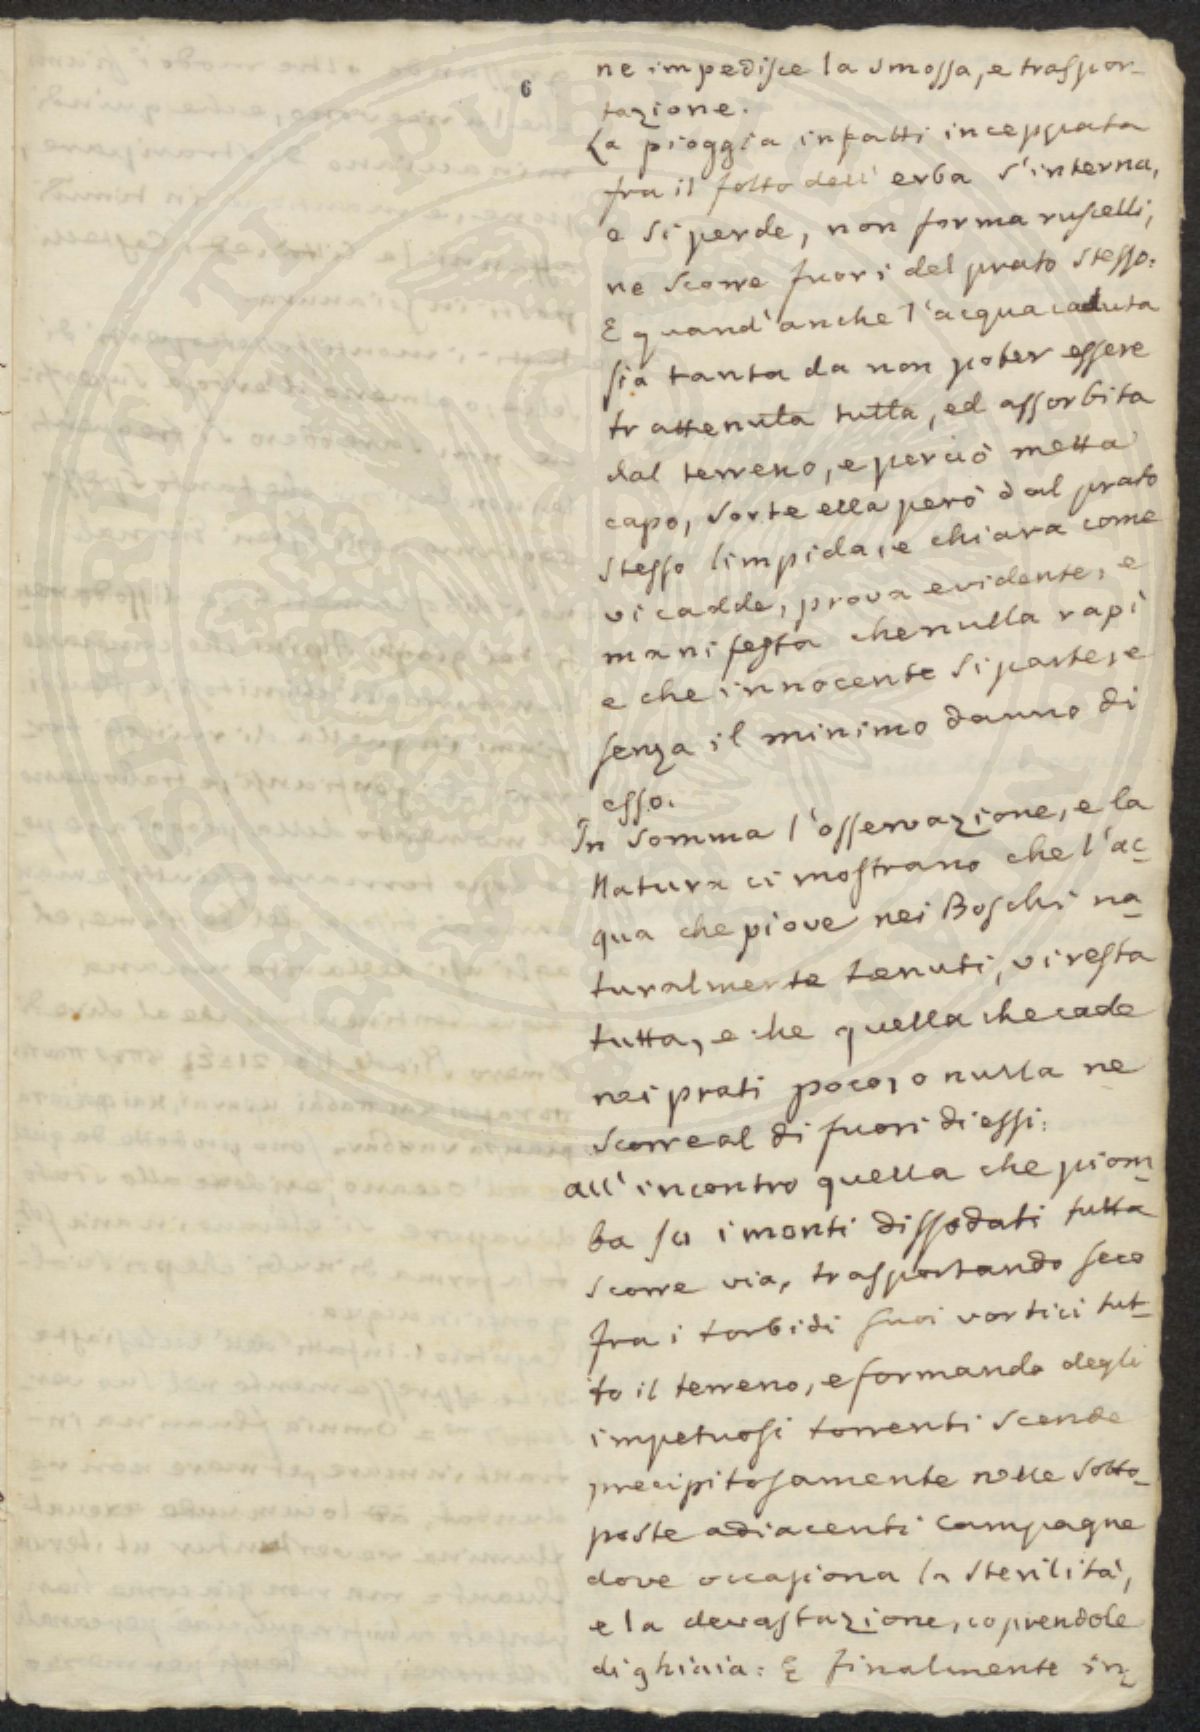 6
ne impedisce la smossa, e traspor-
tazione.
La pioggia infatti inceppata
fra il folto dell' erba s'interna,
e si perde, non forma ruscelli,
ne scorre fuori del prato stesso:
E quand' anche l'acqua caduta
sia tanta da non poter essere
trattenuta tutta, ed assorbita
dal terreno, e perciò metta
capo, sorte ella però dal prato
stesso limpida, e chiara come
vi cadde, prova evidente, e
manifesta che nulla rapì
e che innocente si parte, e
senza il minimo danno di
esso.
In somma l'osservazione, e la
Natura ci mostrano che l'ac-
qua che piove nei Boschi na-
turalmente tenuti, vi resta
tutta, e che quella che cade
nei prati poco, o nulla ne
scorre al di fuori di essi:
all' incontro quella che piom-
ba su i monti dissodati tutta
scorre via, trasportando seco
fra i torbidi suoi vortici tut-
to il terreno, e formando degli
impetuosi torrenti scende
precipitosamente nelle sotto-
poste adiacenti campagne
dove occasiona la sterilità,
e la devastazione, coprendole
di ghiaia: E finalmente in-